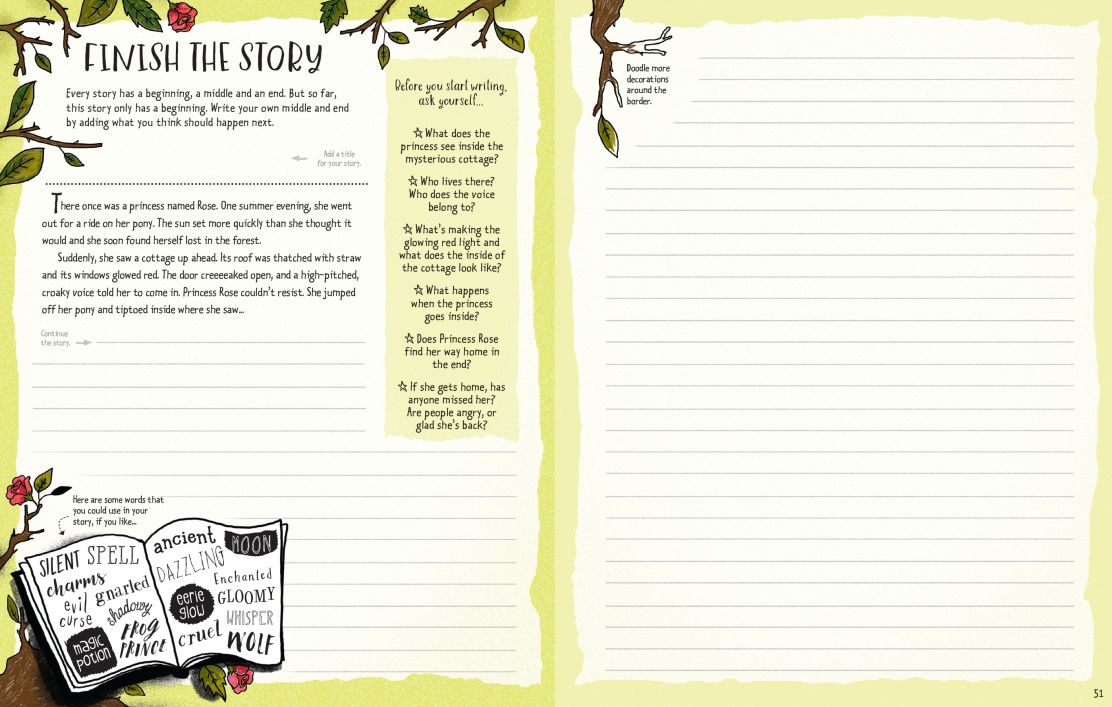 FINISH THE STORY
Every story has a beginning, a middle and an end. But so far,
this story only has a beginning. Write your own middle and end
by adding what you think should happen next.
Add a title
for your story.
There once was a princess named Rose. One summer evening, she went
out for a ride on her pony. The sun set more quickly than she thought it
would and she soon found herself lost in the forest.
Suddenly, she saw a cottage up ahead. Its roof was thatched with straw
and its windows glowed red. The door creeeeaked open, and a high-pitched,
croaky voice told her to come in. Princess Rose couldn't resist. She jumped
off her pony and tiptoed inside where she saw...
Continue
the story.
Before you start writing,
ask yourself...
What does the
princess see inside the
mysterious cottage?
Who lives there?
Who does the voice
belong to?
What's making the
glowing red light and
what does the inside of
the cottage look like?
What happens
when the princess
goes inside?
Does Princess Rose
find her way home in
the end?
If she gets home, has
anyone missed her?
Are people angry, or
glad she's back?
Here are some words that
you could use in your
story, if you like...
SILENT SPELL
charms
evil
curse
gnarled
shadowy
magic
potion
FROG
PRINCE
ancient
MOON
DAZZLING
Enchanted
eerie
glow
GLOOMY
WHISPER
cruel
WOLF
Doodle more
decorations
around the
border.
51